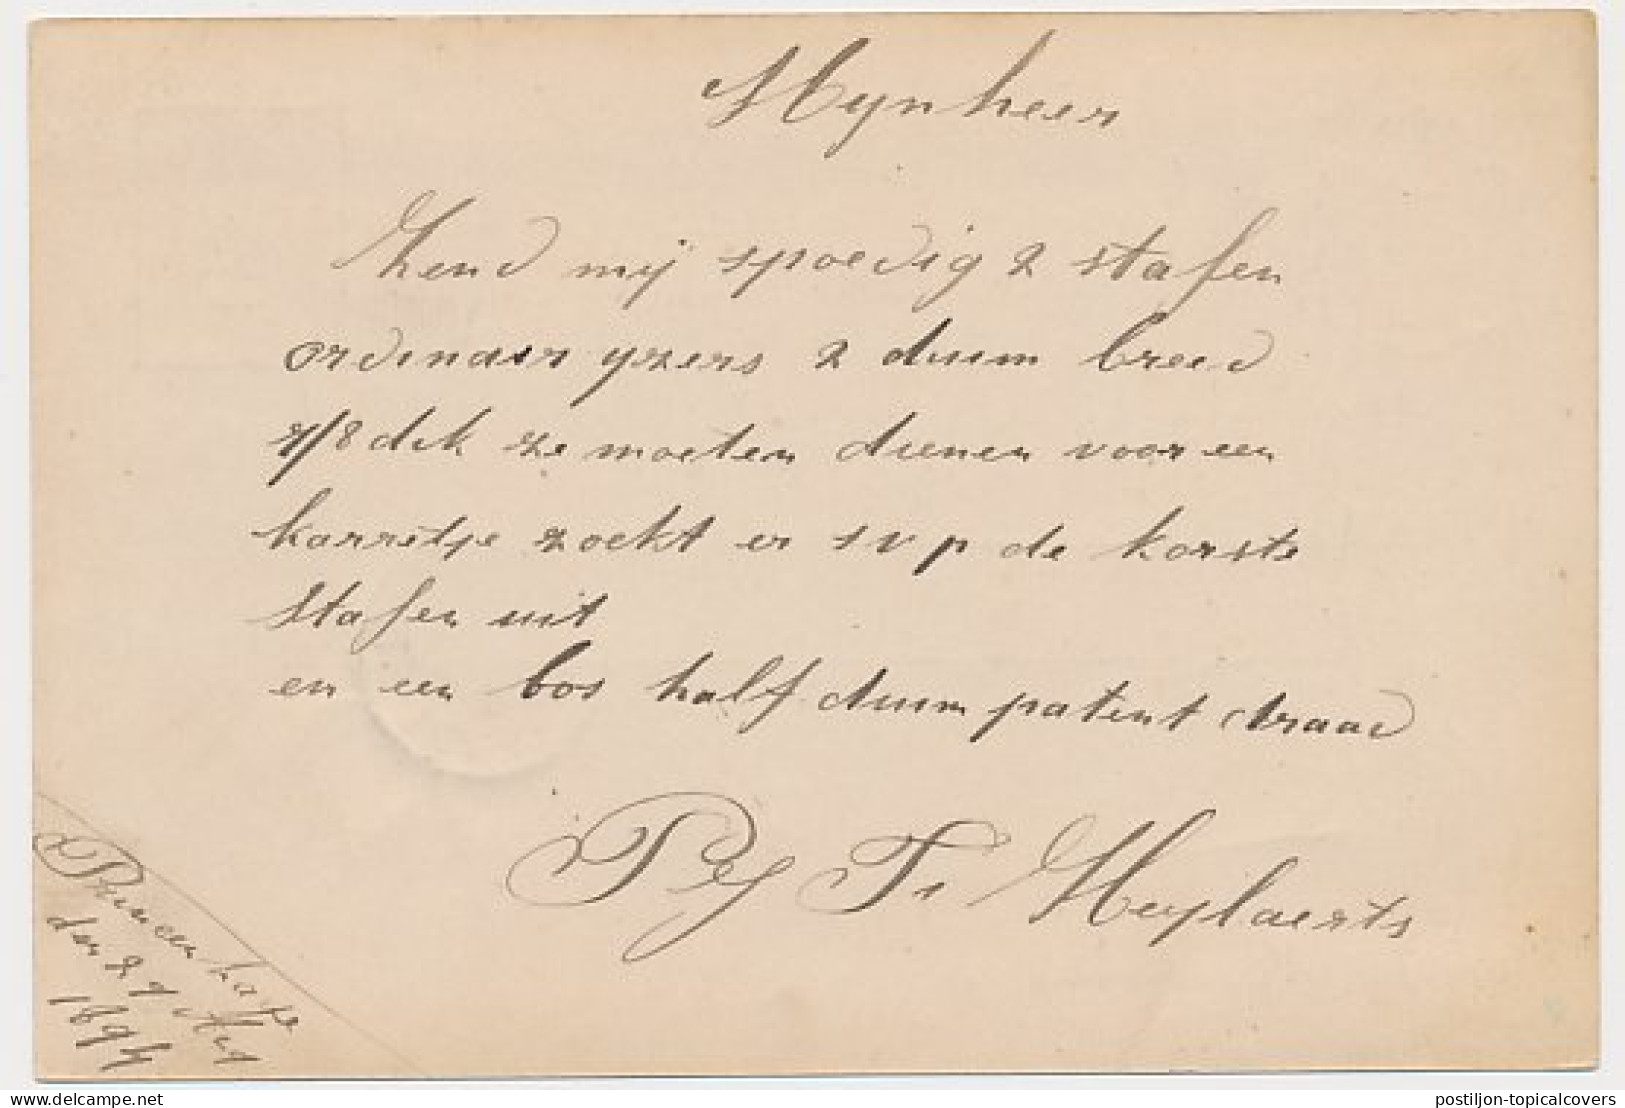 Mynheer
Zend mij spoedig 2 stafen
ordinair yzers 2 duim breed
7/8 dik ze moeten dienen voor een
karretje zoekt er s v p de korste
stafen uit
en een bos half duim patent draad
Fr Heylaerts
Princenhage
den 29 Aug
1894
www.delcampe.net
postiljon-topicalcovers